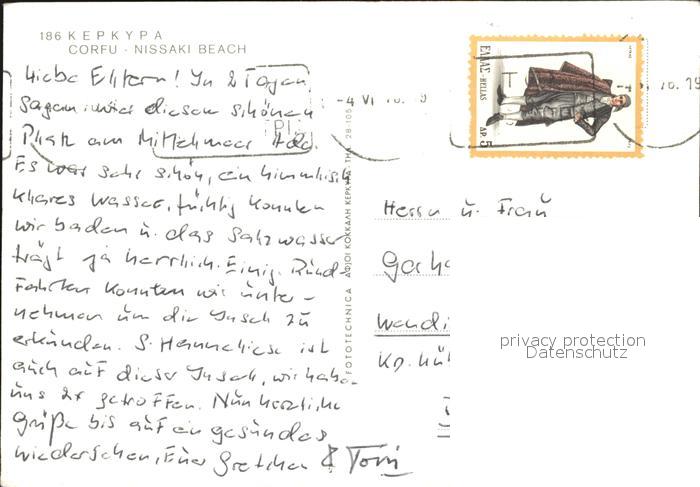 186 ΚΕΡΚΥΡΑ
CORFU - NISSAKI BEACH
Liebe Eltern! In 2 Tagen
sagen wir diesem schönen
Platz am Mittelmeer Ade.
Es war sehr schön, ein himmlisch
klares Wasser, tüchtig konnten
wir baden u. das Salzwasser
trägt ja herrlich. Einig. Rund
Fahrten konnten wir unter-
nehmen um die Insel zu
erkunden. S. Hanneliese ist
auch auf dieser Insel, wir haben
uns 2x getroffen. Nun herzliche
Grüße bis auf ein gesundes
Wiedersehen, Eure Gretchen & Toni
FOTOTECHNICA ΑΦΟΙ ΚΟΚΚΑΛΗ ΚΕΡΚΥΡΑ ΤΗΛ. 28-105
-4 VI 76. 9
-4 VI 76. 19
ΕΛΛΑΣ-HELLAS
ΔΡ. 5
Herrn u. Frau
Gerh
Wendl
privacy protection
Datenschutz